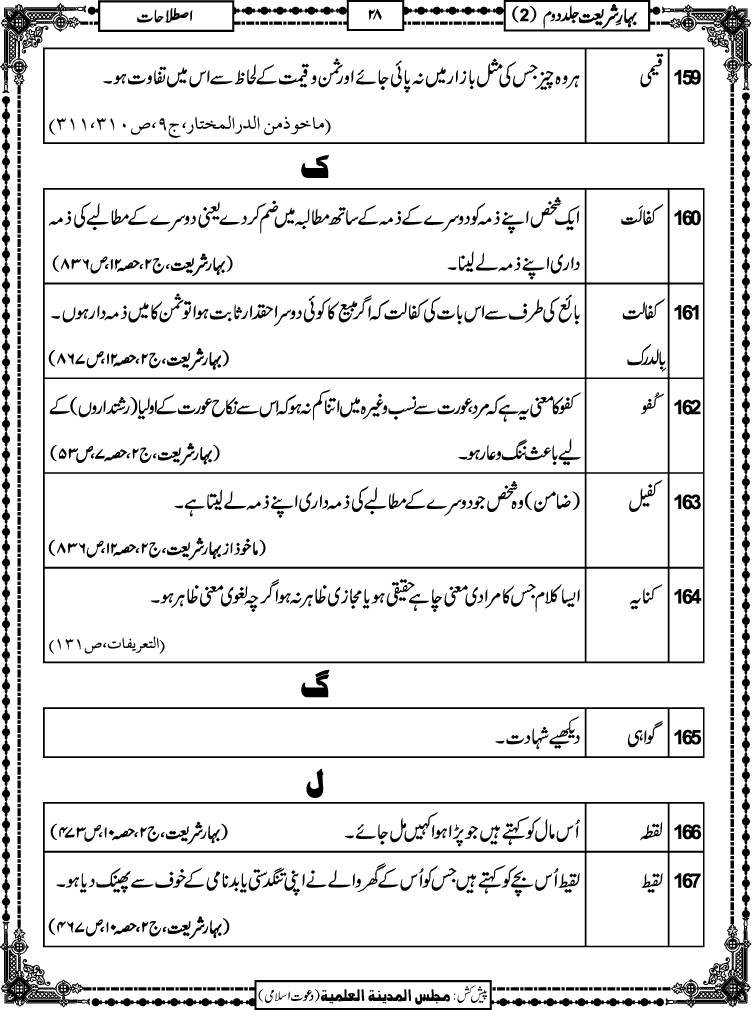 بہارِ شریعت جلد دوم (2)
۲۸
اصطلاحات
159 قیمی ہر وہ چیز جس کی مثل بازار میں نہ پائی جائے اور ثمن و قیمت کے لحاظ سے اس میں تفاوت ہو۔
(ماخوذمن الدرالمختار،ج۹،ص۳۱۰،۳۱۱)
ک
160 کفالَت ایک شخص اپنے ذمہ کو دوسرے کے ذمہ کے ساتھ مطالبہ میں ضم کر دے یعنی دوسرے کے مطالبے کی ذمہ
داری اپنے ذمہ لے لینا۔ (بہار شریعت، ج۲، حصہ۱۲، ص۸۳۶)
161 کفالت بائع کی طرف سے اس بات کی کفالت کہ اگر مبیع کا کوئی دوسرا حقدار ثابت ہوا تو ثمن کا میں ذمہ دار ہوں۔
بِالدرک (بہار شریعت، ج۲، حصہ۱۲، ص۸۶۷)
162 کُفو کفو کا معنی یہ ہے کہ مرد، عورت سے نسب وغیرہ میں اتنا کم نہ ہو کہ اس سے نکاح عورت کے اولیا (رشتداروں) کے
لیے باعث ننگ و عار ہو۔ (بہار شریعت، ج۲، حصہ۷، ص۵۳)
163 کفیل (ضامن) وہ شخص جو دوسرے کے مطالبے کی ذمہ داری اپنے ذمہ لے لیتا ہے۔
(ماخوذ از بہار شریعت، ج۲، حصہ۱۲، ص۸۳۶)
164 کنایہ ایسا کلام جس کا مرادی معنی چاہے حقیقی ہو یا مجازی ظاہر نہ ہو اگرچہ لغوی معنی ظاہر ہو۔
(التعریفات،ص۱۳۱)
گ
165 گواہی دیکھیے شہادت۔
ل
166 لقطہ اُس مال کو کہتے ہیں جو پڑا ہوا کہیں مل جائے۔ (بہار شریعت، ج۲، حصہ۱۰، ص۴۷۳)
167 لقیط لقیط اُس بچے کو کہتے ہیں جس کو اُس کے گھر والے نے اپنی تنگدستی یا بدنامی کے خوف سے پھینک دیا ہو۔
(بہار شریعت، ج۲، حصہ۱۰، ص۴۶۷)
پیش کش: مجلس المدینة العلمیة (دعوت اسلامی)